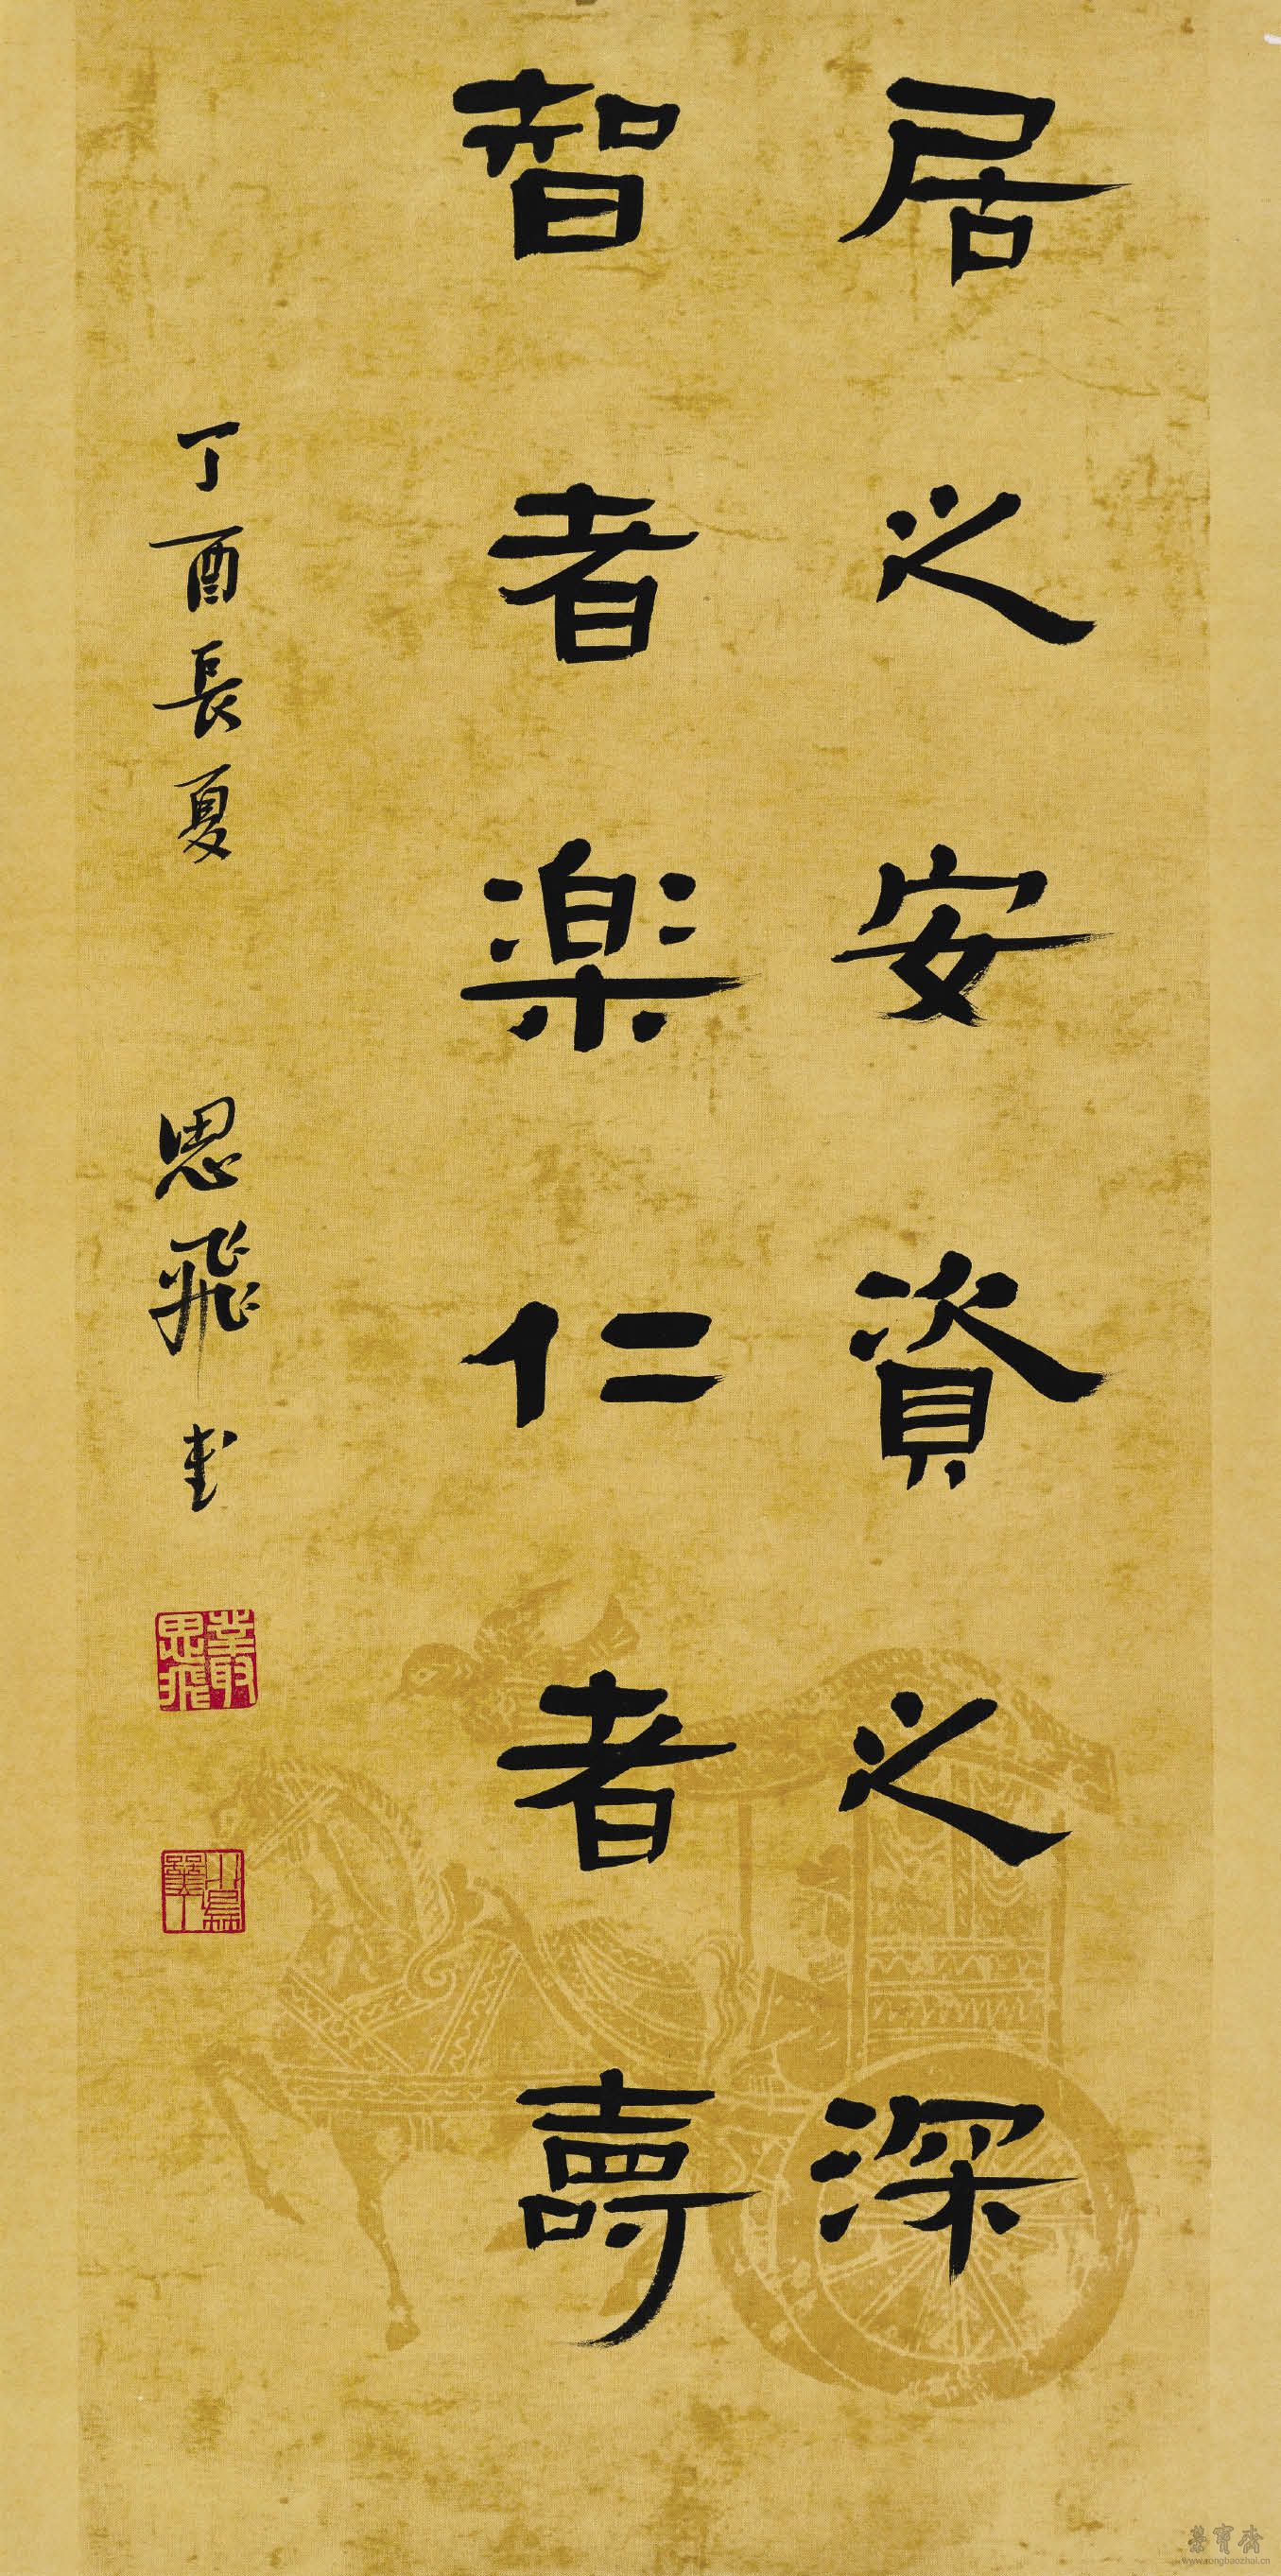 居之安資之深
智者楽仁者壽
丁酉長夏
思飛書
叢思飛
榮寶齋
www.rongbaozhai.cn